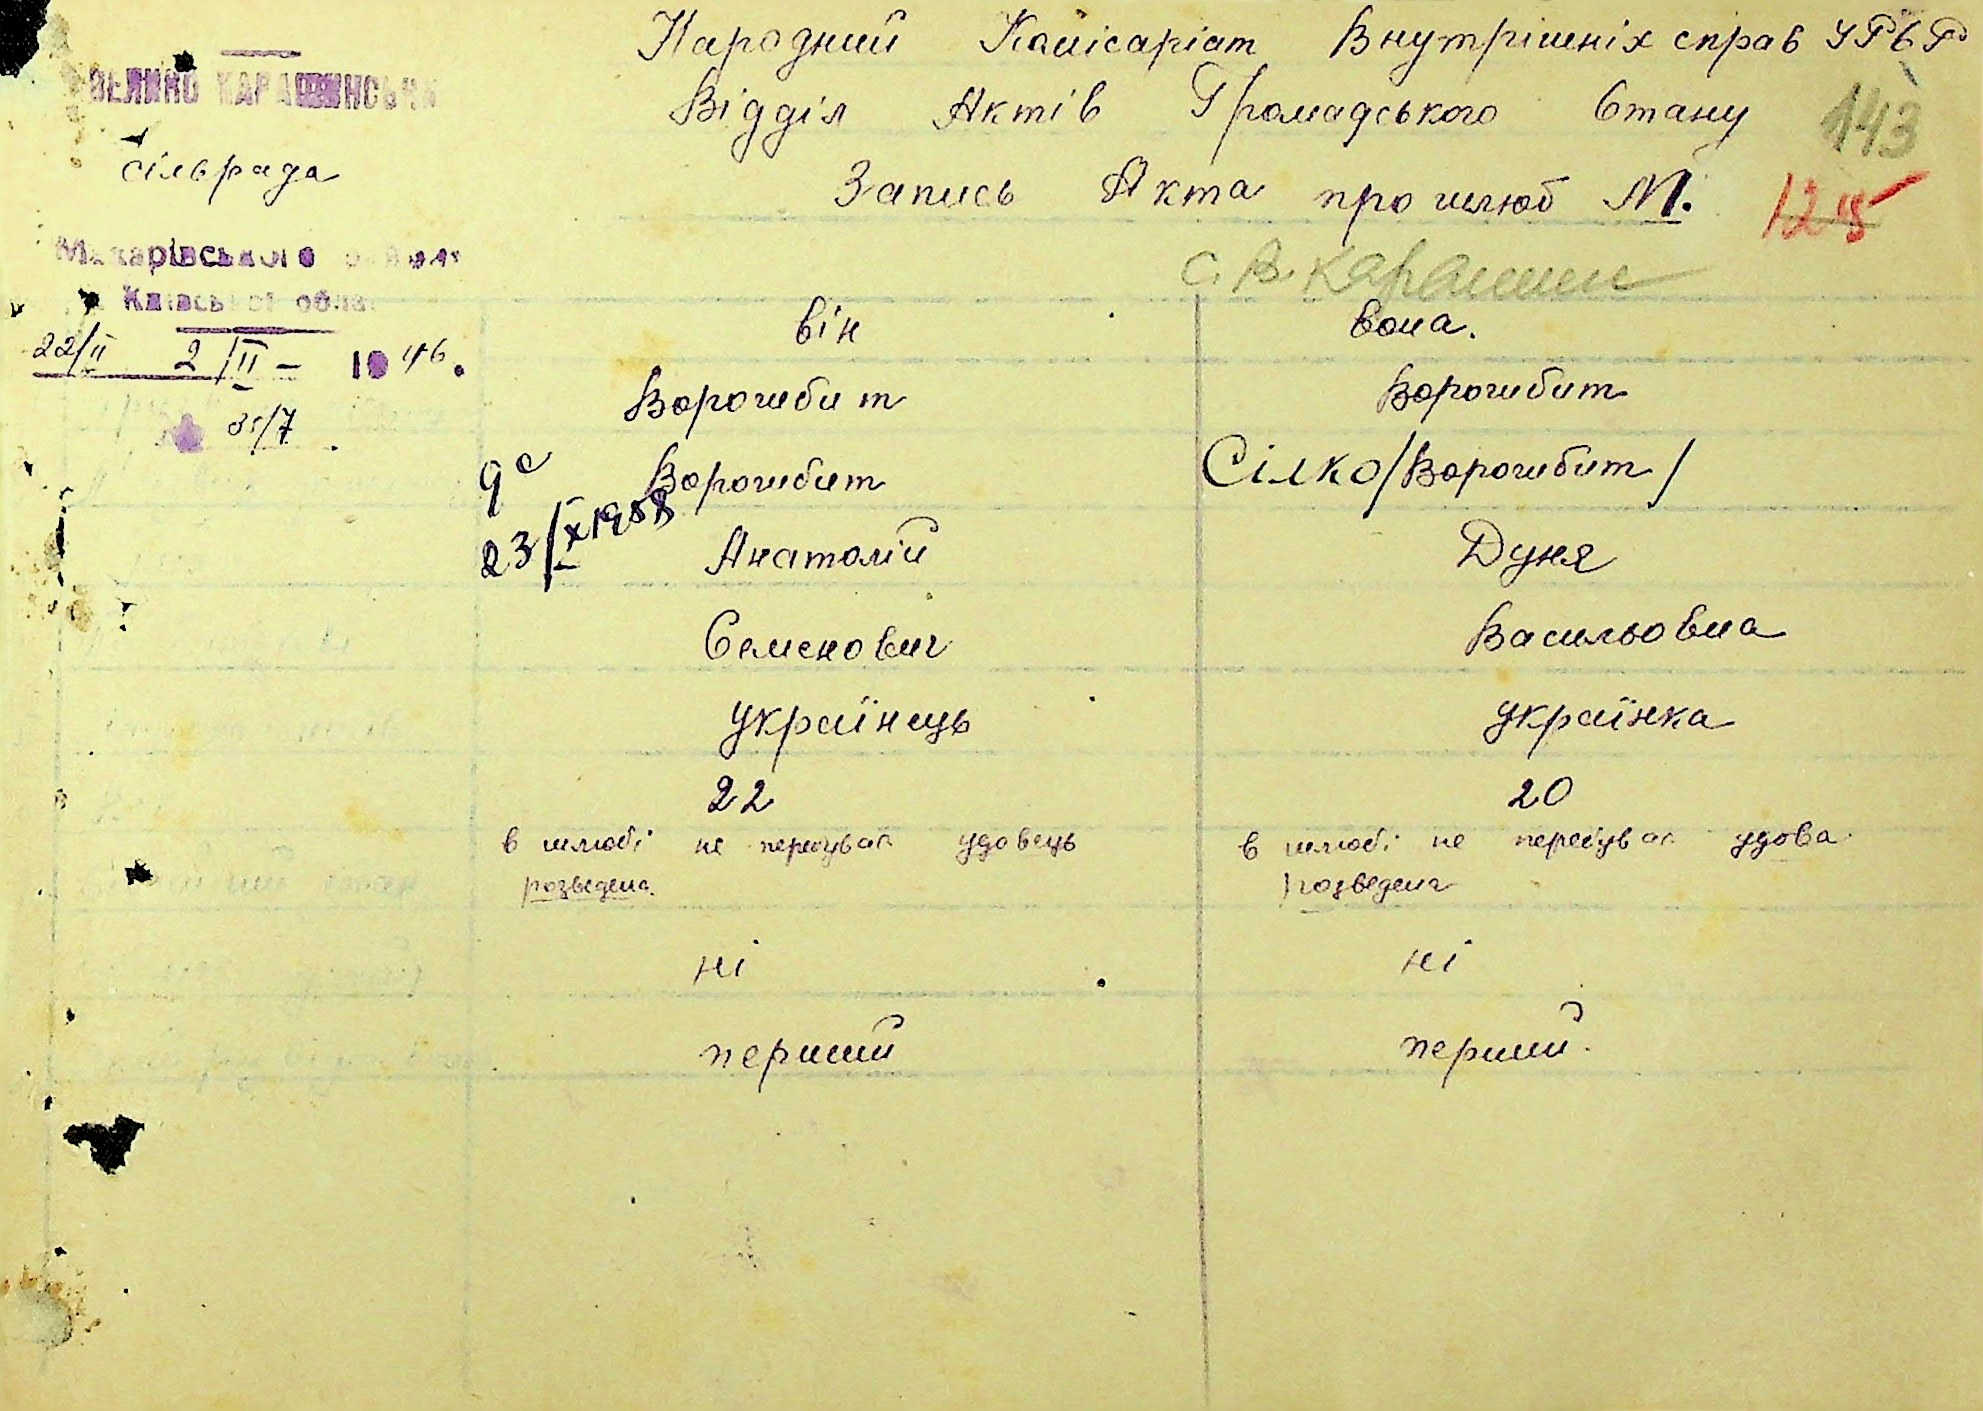 Народний Комісаріат Внутрішніх справ УРСР
Відділ Актів Громадського Стану
143
Запись Акта про шлюб №.
12
с. В. Карашин
ВЕЛИКО КАРАШИНСЬКА
сільрада
Макарівського
Київської обла
22/II 2/II - 1946.
35/7
він вона.
Ворошбит Ворошбит
Ворошбит Сілко/Ворошбит/
23/IX 1958
Анатолій Дуня
Семенович Васильовна
українець українка
22 20
в шлюбі не перебувал удовець в шлюбі не перебувал удова
розведена розведена
ні ні
перший перший.